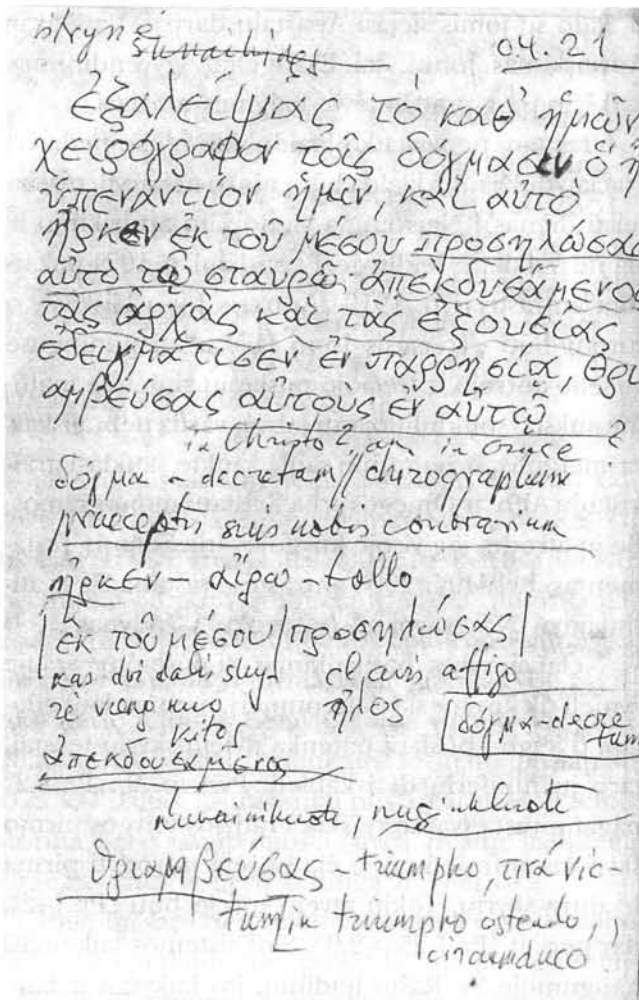 04.21
ἐξαλειψας τό καθ' ἡμῶν
χειρόγραφον τοῖς δόγμασιν ὅ ἦ
ὑπεναντίον ἡμῖν, καὶ αὐτὸ
ἦρκεν ἐκ τοῦ μέσου προσηλώσας
αὐτὸ τῷ σταυρῷ, ἀπεκδυσάμενος
τὰς ἀρχὰς καὶ τὰς ἐξουσίας
ἐδειγμάτισεν ἐν παρρησίᾳ, θρι
αμβεύσας αὐτοὺς ἐν αὐτῷ
in Christo? an in cruce?
δόγμα - decretum // chirographum
praeceptis suis nobis contrarium
ἦρκεν - αἴρω - tollo
ἐκ τοῦ μέσου / προσηλώσας
kas dvi dalis sky- clavis affigo
rė vieną nuo ἧλος
kitos δόγμα - decre
tum
ἀπεκδουσάμενος
nuvainikuoti, nuginkluoti
θριαμβεύσας - triumpho, τινά vic-
tum, in triumpho ostendo,
circumduco.